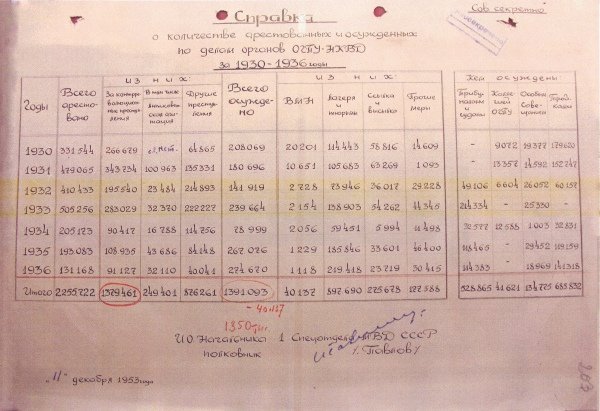 Сов. секретно
Рассекречено
Справка
о количестве арестованных и осужденных
по делам органов ОГПУ-НКВД
за 1930-1936 годы
Годы Всего арестовано из них: За контрреволюционные преступления В том числе антисоветская агитация Другие преступления Всего осуждено из них: ВМН Лагеря и тюрьмы Ссылка и высылка Прочие меры Кем осуждены: Трибуналами и судами Коллегией ОГПУ Особым Совещанием Тройками
1930 331544 266679 64865 208069 20201 114443 58816 14609 - 9072 19377 179620
1931 479065 343734 100963 135331 180696 10651 105683 63269 1093 - 13357 14592 152747
1932 410433 195540 23484 214893 141919 2728 73946 36017 29228 49106 6604 26052 60157
1933 505256 283029 32370 222227 239664 2154 138903 54262 44345 214334 - 25330 -
1934 205173 90417 16788 114756 78999 2056 59451 5994 11498 32577 12588 1003 32831
1935 193083 108935 43686 84148 267076 1229 185846 33601 46400 118465 - 29452 119159
1936 131168 91127 32110 40041 274670 1118 219418 23719 30415 114383 - 18969 141318
Итого 2255722 1379461 249401 876261 1391093 40137 897690 275678 177588 528865 41621 134775 685832
- 40137
1350 тыс.
И О Начальника 1 Спецотдела МВД СССР
полковник /Павлов/
"11" декабря 1953 года